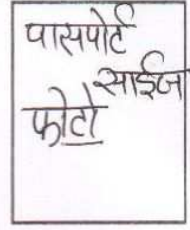 पासपोर्ट
साईज
फोटो